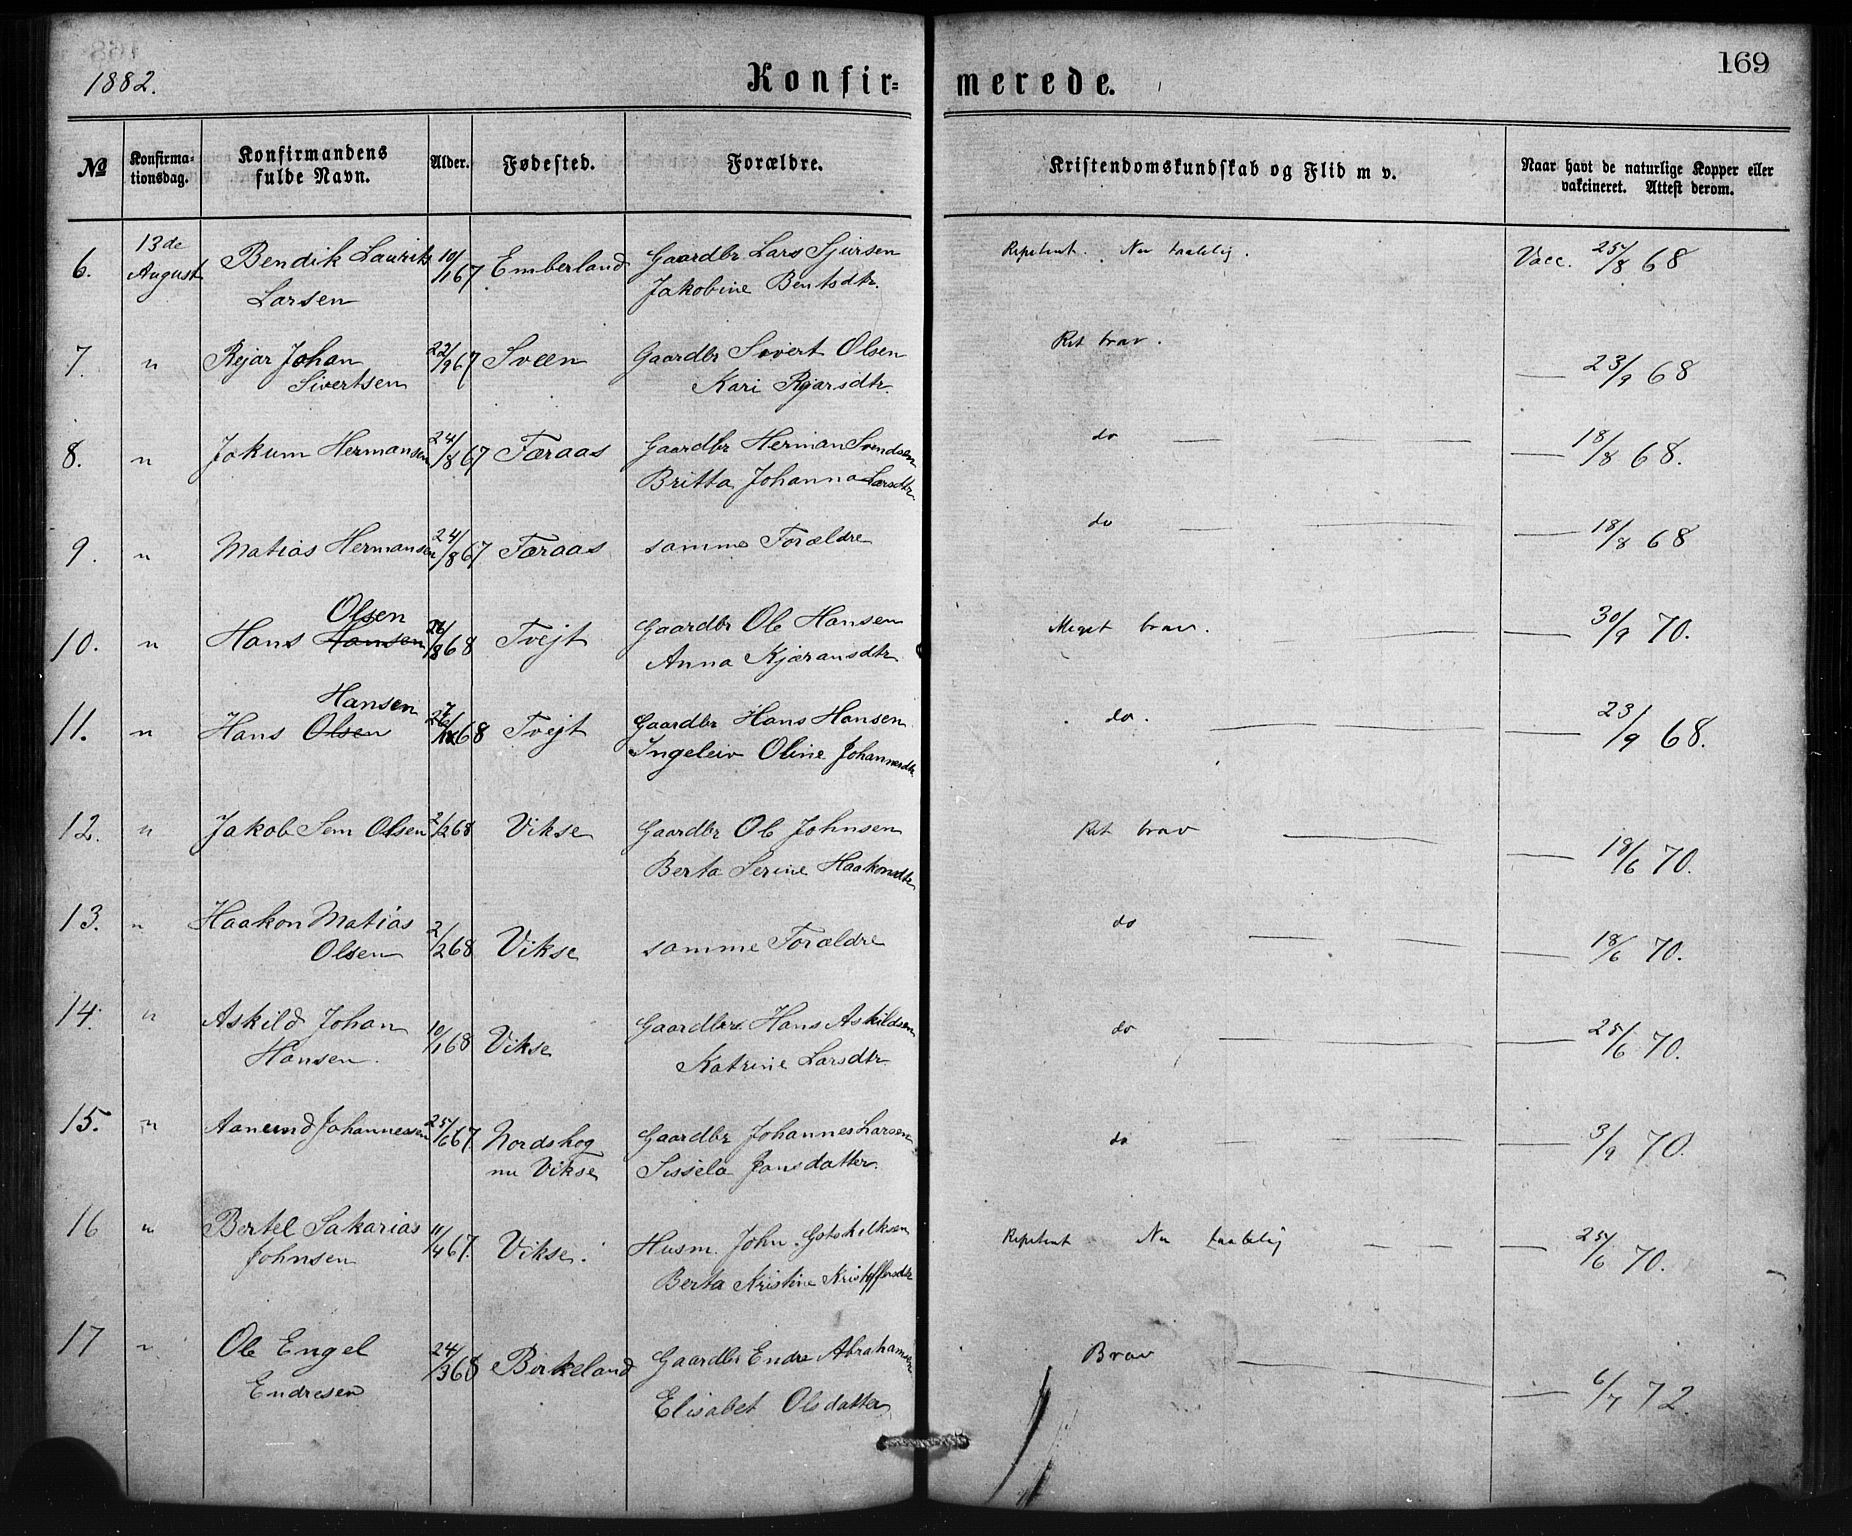 169
1882.
Konfir=merede.
№
Konfirma-
tionsdag.
Konfirmandens
fulde Navn.
Alder.
Fødested.
Forældre.
Kristendomskundskab og Flid m v.
Naar havt de naturlige Kopper eller
vakcineret. Attest derom.
6. 13de August Bendik Laurits 10/1 67 Emberland Gaardbr Lars Sjursen Repetent. Nu taalelig. Vacc. 25/8 68
Larsen Jakobine Bentsdtr.
7. " Rejar Johan 22/9 67 Sveen Gaardbr Sivert Olsen Ret brav. — 23/9 68
Sivertsen Kari Rejarsdtr.
8. " Jokum Hermansen 24/8 67 Færaas Gaardbr Herman Svendsen do — — — 18/8 68.
Britta Johanna Larsdtr.
9. " Matias Hermansen 24/8 67 Færaas samme Forældre do — — — 18/8 68
Olsen
10. " Hans Hansen 68 Tvejt Gaardbr Ole Hansen Meget brav. — — 30/9 70.
Anna Kjæransdtr
Hansen
11. " Hans Olsen 68 Tvejt Gaardbr Hans Hansen do. — — 23/9 68.
Ingeleiv Oline Johannesdtr
12. " Jakob Sem Olsen 2/2 68 Vikse Gaardbr Ole Johnsen Ret brav — — 18/6 70.
Berta Serine Haakonsdtr
13. " Haakon Matias 2/2 68 Vikse samme Forældre do — — — 18/6 70.
Olsen
14. " Askild Johan 10/1 68 Vikse Gaardbr Hans Askildsen do — — — 25/6 70.
Hansen. Katrine Larsdtr.
15. " Aanund Johannessen 25/6 67 Nordskog Gaardbr Johannes Larsen do — — — 3/9 70.
nu Vikse Sissela Jonsdatter.
16 " Bertel Sakarias 11/4 67. Vikse. Husm. John Gotskalksen Repetent Nu taalelig — — — 25/6 70.
Johnsen Berta Kristine Kristoffersdtr
17 " Ole Engel 24/3 68 Birkeland Gaardbr Endre Abrahamsen Brav — — 6/7 72.
Endresen Elisabet Olsdatter